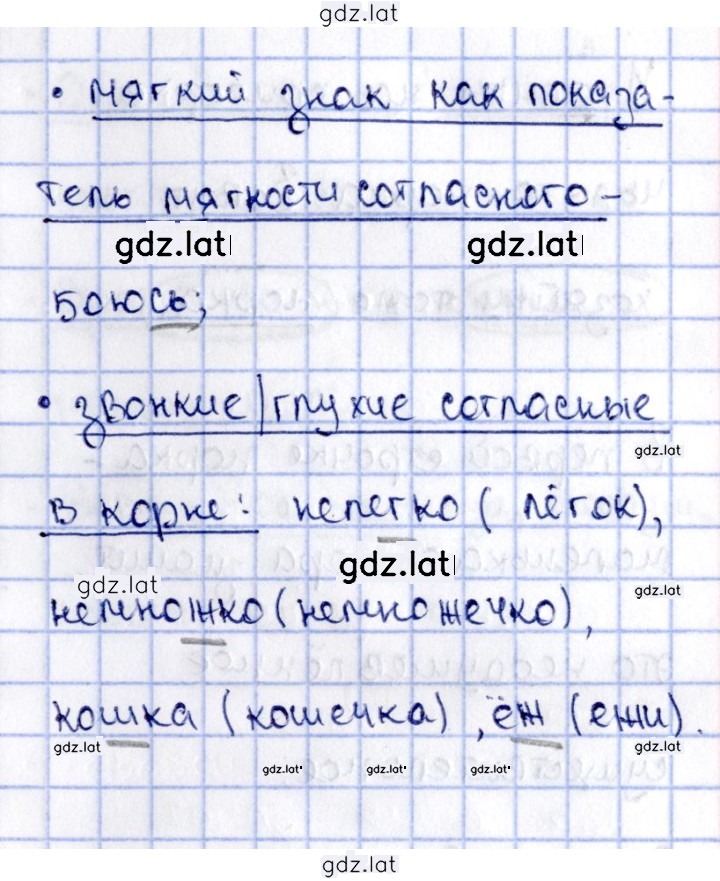 gdz.lat
• мягкий знак как показа-
тель мягкости согласного -
gdz.lat gdz.lat
боюсь;
• звонкие/глухие согласные
gdz.lat
в корне: нелегко (лёгок),
gdz.lat gdz.lat gdz.lat
немножко (немножечко),
кошка (кошечка), ёж (ежи).
gdz.lat gdz.lat
gdz.lat gdz.lat gdz.lat
gdz.lat